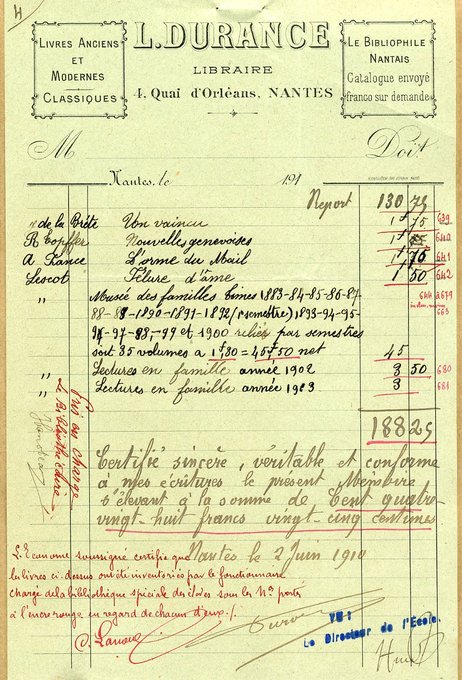 4
Livres Anciens
et
Modernes
Classiques
L. DURANCE
LIBRAIRE
4, Quai d'Orléans, NANTES
Le Bibliophile
Nantais
Catalogue envoyé
franco sur demande
M
Doit
Nantes, le 191
Report 130 75
de la Brète Un vaincu 1 75 639
R Topffer Nouvelles genevoises 1 640
A France L'orme du Mail 1 75 641
Lescot Fêlure d'âme 1 50 642
" Musée des familles 1883-84-85-86-87-
88-89-1890-1891-1892 (1 semestre) 1893-94-95-
96-97-98-99 et 1900 reliés par semestres
soit 35 volumes a 1f30 = 45f50 net 45
" Lectures en famille année 1902 3 50 680
" Lectures en famille année 1903 3 681
188 25
Pris en charge
Le Bibliothécaire
Certifié sincère, véritable et conforme
à mes écritures le présent Mémoire
s'élevant à la somme de Cent quatre-
vingt-huit francs vingt-cinq centimes
Nantes le 2 Juin 1910
L'Econome soussigné certifie que
les livres ci-dessus ont été inventoriés par le fonctionnaire
chargé de la bibliothèque spéciale des élèves sous les Nos portés
à l'encre rouge en regard de chacun d'eux.
VU :
Le Directeur de l'École.